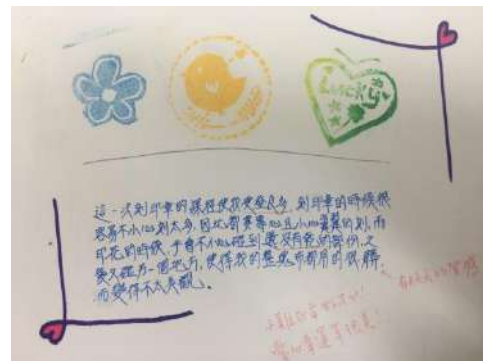 Lucky
這一次刻印章的課程使我受益良多，刻印章的時候很
容易不小心刻太多，因此需要專心且小心翼翼的刻，而
印花的時候，手會不小心碰到還沒有乾的部份，又
後又碰另一個地方，使得我的整塊布都用的很髒，
而變得不太美觀。